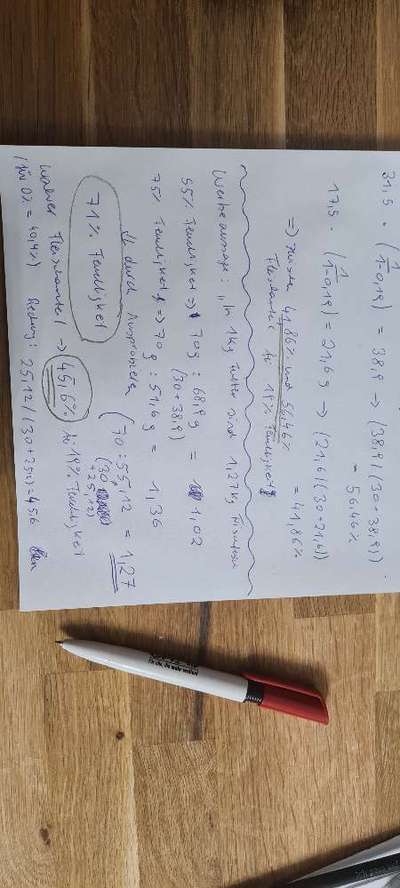 31,5 · (1/1-0,19) = 38,9 → (38,9/(30+38,9))
= 56,46%
17,5 · (1/1-0,19) = 21,6 g → (21,6/(30+21,6))
= 41,86%
=> zwischen 41,86% und 56,46%
bei 19% Feuchtigkeit
Werbeaussage: "In 1kg Futter sind 1,27kg
55% Feuchtigkeit => 70g : 68,9g = 1,02
(30+38,9)
75% Feuchtigkeit => 70g : 51,6g = 1,36
durch (70 : 55,12 = 1,27
(30
+25,12)
71% Feuchtigkeit
-> 45,6% bei 19% Feuchtigkeit
(für 0% = 40,4%) Rechnung: 25,12/(30+25,12)=45,6